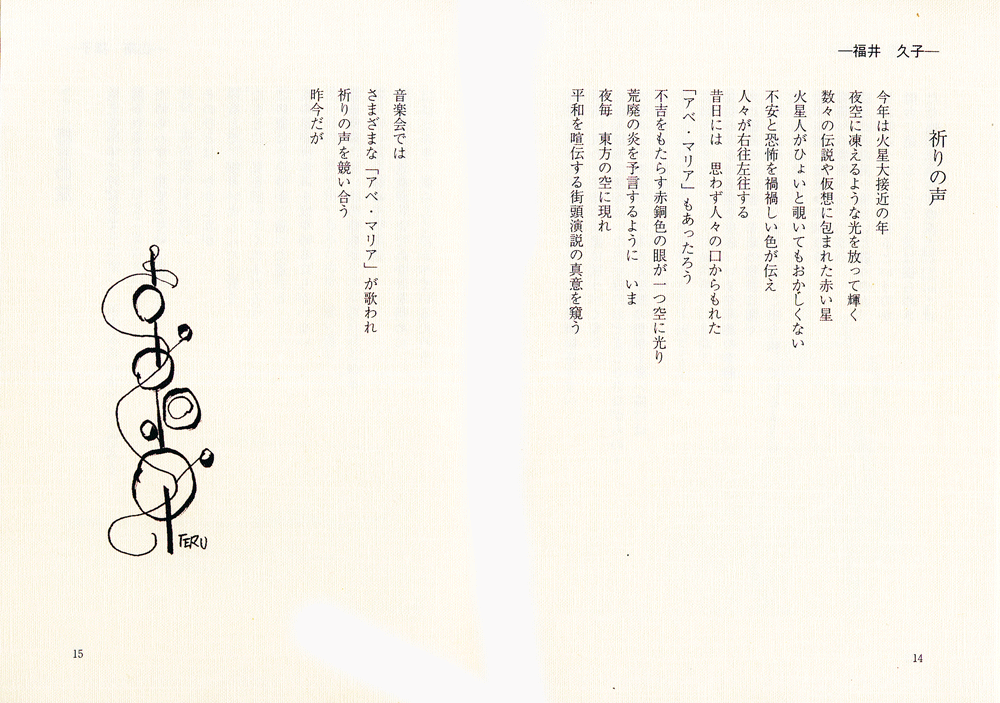 ―福井　久子―
祈りの声
今年は火星大接近の年
夜空に凍えるような光を放って輝く
数々の伝説や仮想に包まれた赤い星
火星人がひょいと覗いてもおかしくない
不安と恐怖を禍禍しい色が伝え
人々が右往左往する
昔日には　思わず人々の口からもれた
「アベ・マリア」もあったろう
不吉をもたらす赤銅色の眼が一つ空に光り
荒廃の炎を予言するように　いま
夜毎　東方の空に現れ
平和を喧伝する街頭演説の真意を窺う
14
音楽会では
さまざまな「アベ・マリア」が歌われ
祈りの声を競い合う
昨今だが
TERU
15